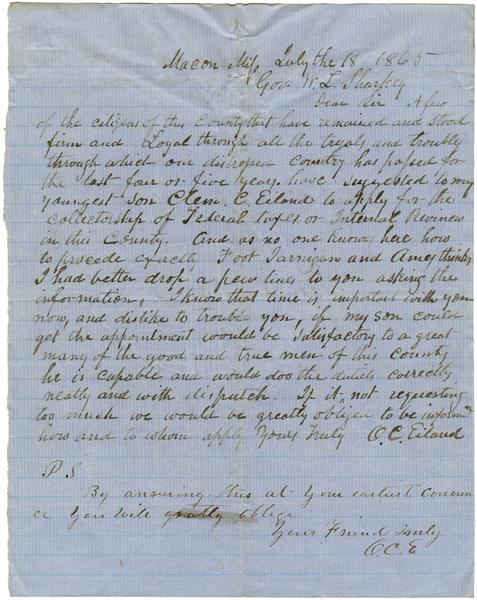 Macon Miss, July the 18, 1865
Gov. W. L. Sharkey
Dear Sir A few
of the citizens of this County that have remained and stood
firm and Loyal through all the tryals and troubls
through which our distroped Country has passed for
the last four or five years. have suggested to my
youngest son Clem. C. Eiland to apply for the
collectorship of Federal taxes or Internal Revinew
in this County. And as no one knows here how
to procede exactly, Foot Jarnigan and Ames thinks
I had better drop a few lines to you asking the
information, I know that time is important with you
now, and dislike to trouble you, if my son could
get the appointment woould be satisfactory to a great
many of the good and true men of this County
he is capable and would doo the dutiels correctly
neatly and with dispatch. If it, not requesting
too much we would be greatly obliged to be informd
how and to whom apply Yours truly O. C. Eiland
P S
By ansuring this at your earliest convinien
ce you will greatly oblige
Your Friend truly
O. C. E